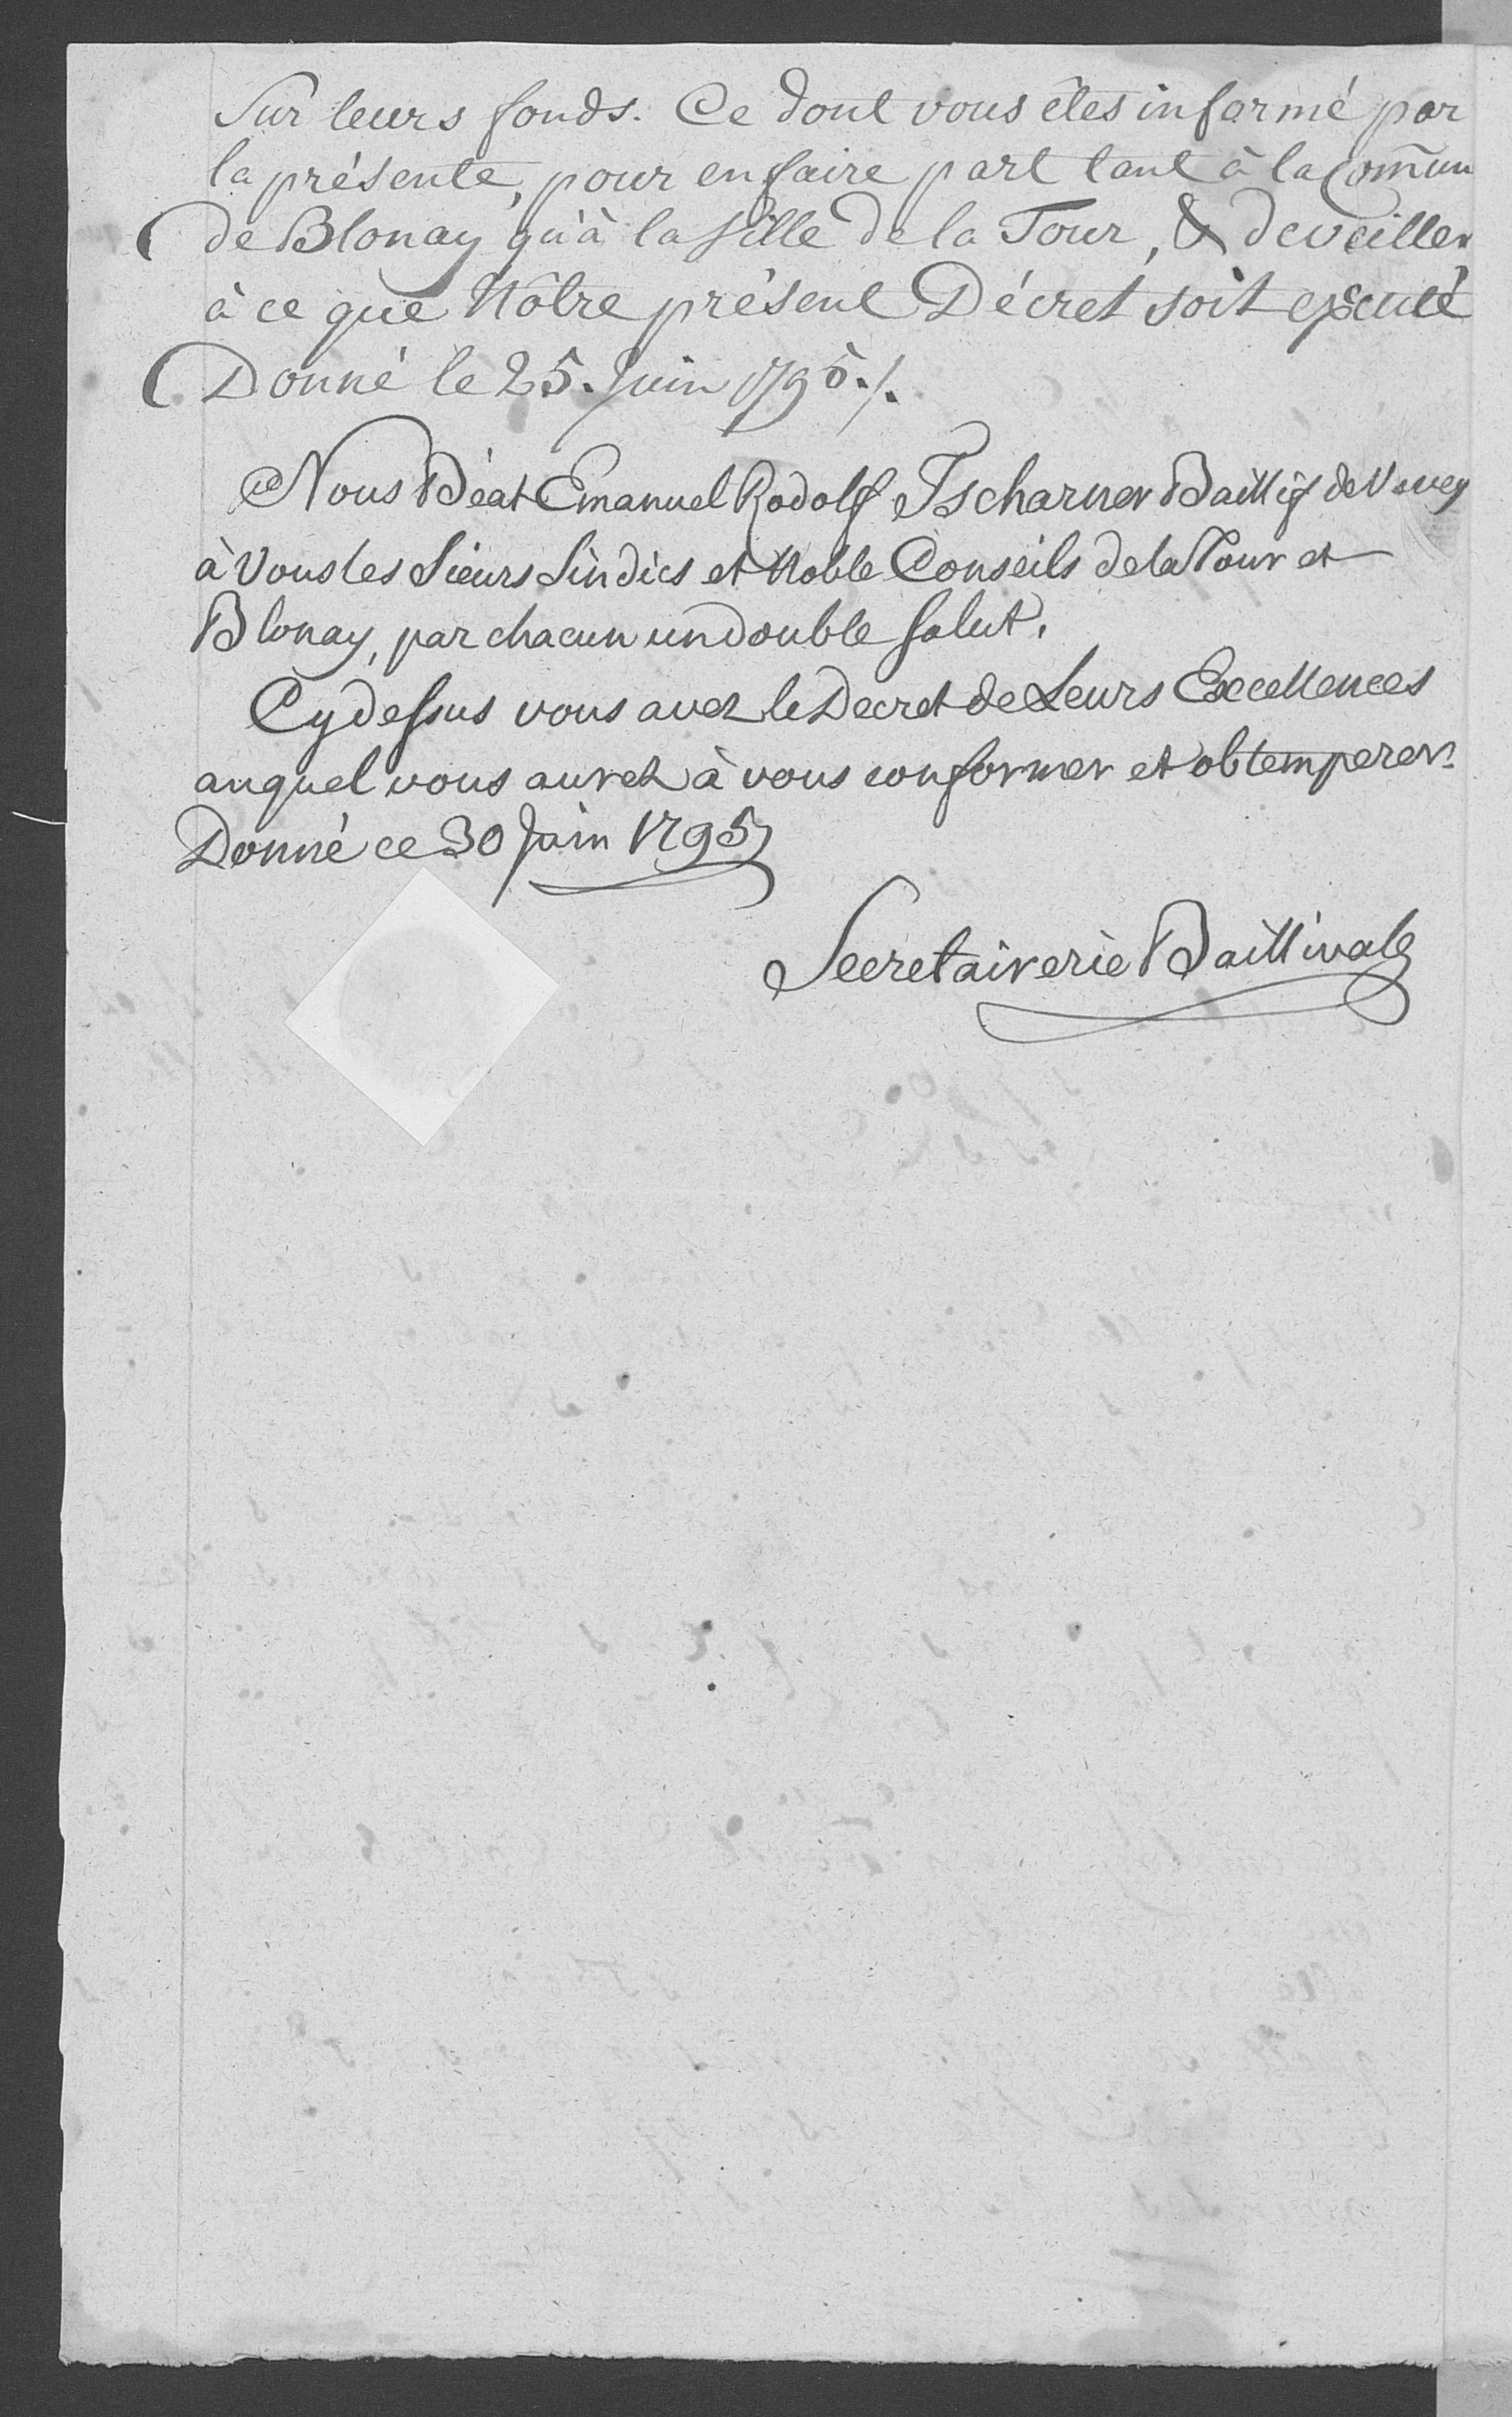 Sur leurs fonds. Ce dont vous êtes informé par
la présente, pour en faire part tant à la Com̃une
de Blonay qu'à la Ville de la Tour, & de veiller
à ce que Nôtre présent Décret soit exécuté
Donné le 25. Juin 1795./.
Nous Béat Emanuel Rodolf Tscharner Baillif de Vevey
à Vous les Sieurs Sindics et Noble Conseils de la Tour et
Blonay, par chacun un double salut.
Cy dessus vous avez le Decret de Leurs Excellences
auquel vous aurez à vous conformer et obtemperer.
Donné ce 30 Juin 1795
Secretairerie Baillivale